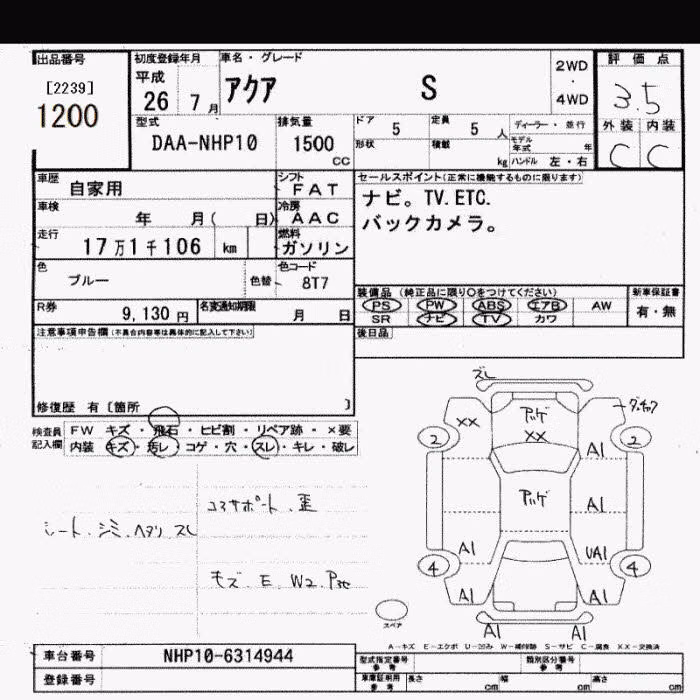 出品番号
[2239]
1200
初度登録年月
平成
26 7 月
車名・グレード
アクア S
2WD
・
4WD
評価点
3.5
外装 内装
C C
型式
DAA-NHP10
排気量
1500
CC
ドア 5
定員 5 人
形状
積載
kg
ディーラー・並行
モデル年式 年
ハンドル 左・右
車歴
自家用
シフト
FAT
車検
年 月( 日)
冷房
AAC
走行
17万1千106 km
燃料
ガソリン
色
ブルー
色替
色コード
8T7
R券
9,130円
名変通知期限
月 日
セールスポイント(正常に機能するものに限ります)
ナビ。TV.ETC.
バックカメラ。
装備品 (純正品に限り○をつけてください)
PS PW ABS エアB AW
SR ナビ TV カワ
新車保証書
有・無
後日品
注意事項申告欄(不具合内容等は具体的に記入して下さい)
修復歴 有〔箇所 〕
検査員
記入欄
FW キズ・飛石・ヒビ割・リペア跡・×要
内装 キズ・汚レ・コゲ・穴・スレ・キレ・破レ
シート.シミ.ヘタリ スレ
コアサポート.歪
キズ.E.W2.P
ズレ
XX
XX
2
2
A1
A1
A1
UA1
4
4
A1
A1
A1
A1
スペア
A-キズ E-エクボ U-凹み W-補修跡 S-サビ C-腐食 XX-交換済
車台番号
NHP10-6314944
登録番号
型式指定番号
参考
類別区分番号
参考
車庫証明用
参考
長さ cm
幅 cm
高さ cm